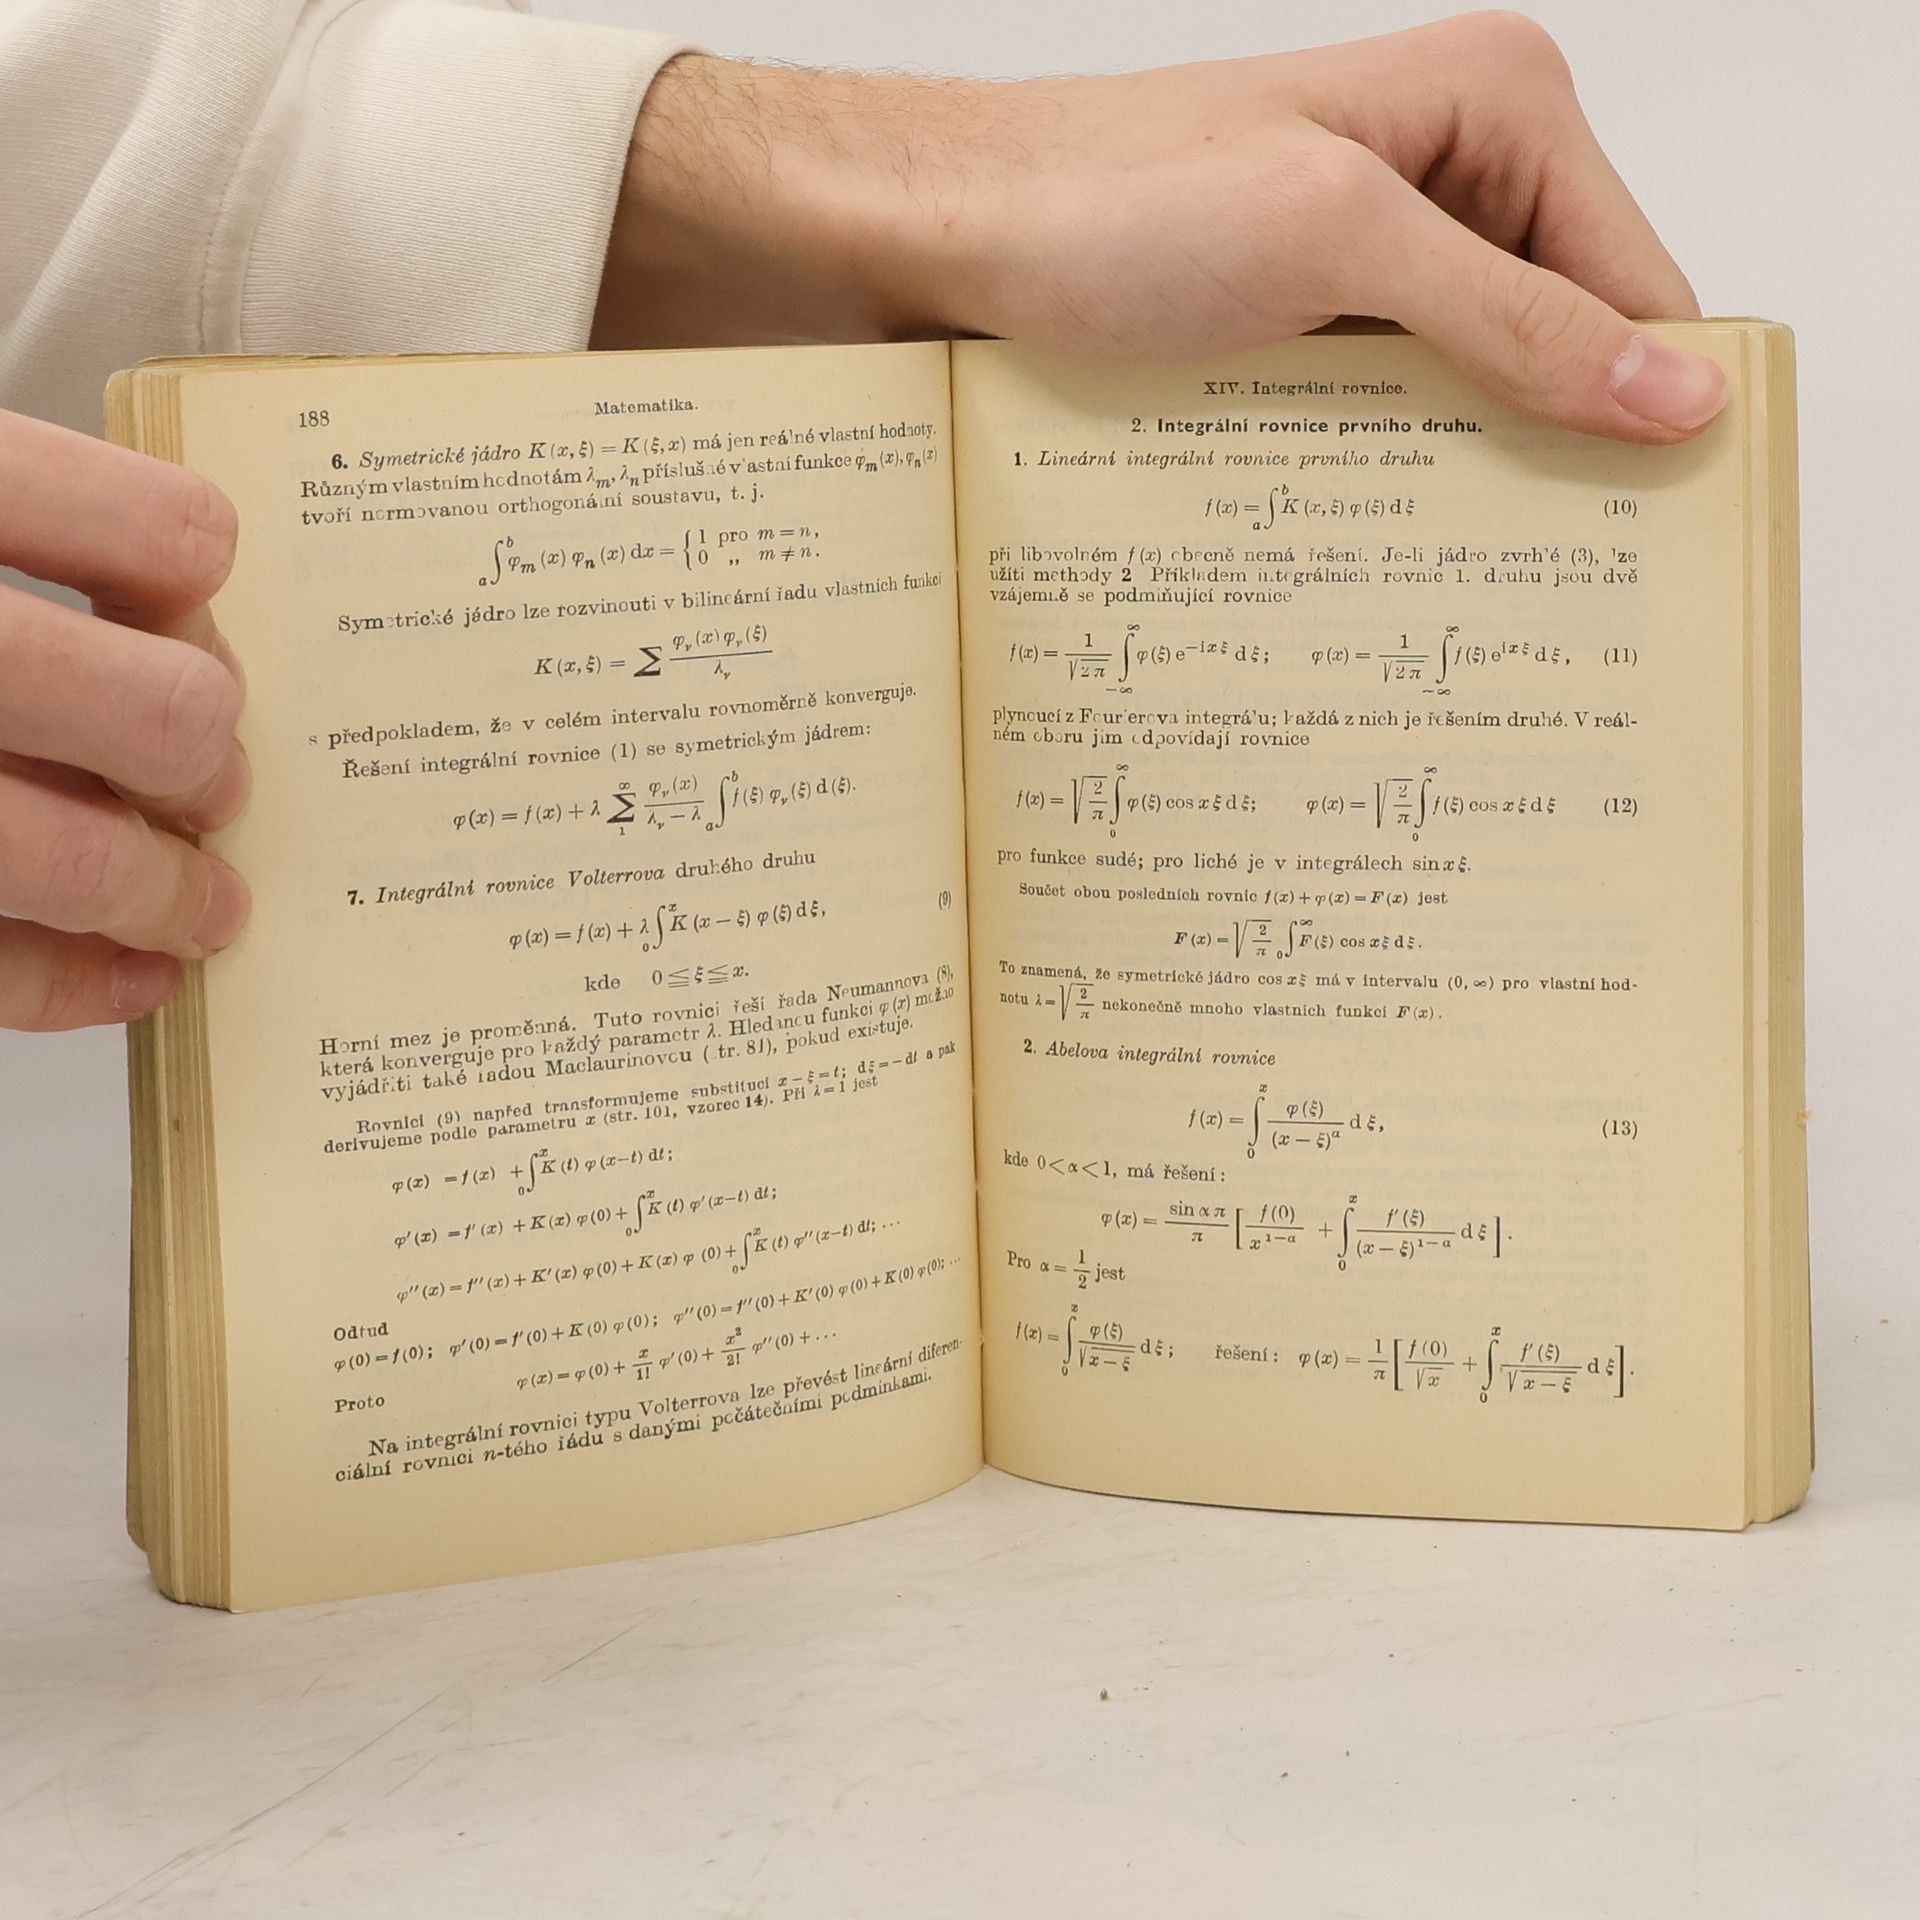 188 Matematika.
6. Symetrické jádro K(x, ξ) = K(ξ, x) má jen reálné vlastní hodnoty.
Různým vlastním hodnotám λₘ, λₙ příslušné vlastní funkce φₘ(x), φₙ(x)
tvoří normovanou orthogonální soustavu, t. j.
ₐ∫ᵇ φₘ(x) φₙ(x) dx = { 1 pro m = n,
0 „ m ≠ n.
Symetrické jádro lze rozvinouti v bilineární řadu vlastních funkcí
K(x, ξ) = ∑ φᵥ(x) φᵥ(ξ) / λᵥ
s předpokladem, že v celém intervalu rovnoměrně konverguje.
Řešení integrální rovnice (1) se symetrickým jádrem:
φ(x) = f(x) + λ ∑₁^∞ φᵥ(x) / (λᵥ − λ) ₐ∫ᵇ f(ξ) φᵥ(ξ) d(ξ).
7. Integrální rovnice Volterrova druhého druhu
φ(x) = f(x) + λ ₀∫ˣ K(x − ξ) φ(ξ) dξ, (9)
kde 0 ≦ ξ ≦ x.
Horní mez je proměnná. Tuto rovnici řeší řada Neumannova (8),
která konverguje pro každý parametr λ. Hledanou funkci φ(x) možno
vyjádřiti také řadou Maclaurinovou (str. 81), pokud existuje.
Rovnici (9) napřed transformujeme substitucí x − ξ = t; dξ = −dt a pak
derivujeme podle parametru x (str. 101, vzorec 14). Při λ = 1 jest
φ(x) = f(x) + ₀∫ˣ K(t) φ(x−t) dt;
φ′(x) = f′(x) + K(x) φ(0) + ₀∫ˣ K(t) φ′(x−t) dt;
φ″(x) = f″(x) + K′(x) φ(0) + K(x) φ (0) + ₀∫ˣ K(t) φ″(x−t) dt; ...
Odtud
φ(0) = f(0); φ′(0) = f′(0) + K(0) φ(0); φ″(0) = f″(0) + K′(0) φ(0) + K(0) φ(0); ...
φ(x) = φ(0) + x/1! φ′(0) + x²/2! φ″(0) + ...
Proto
Na integrální rovnici typu Volterrova lze převést lineární diferen-
ciální rovnici n-tého řádu s danými počátečními podmínkami.
XIV. Integrální rovnice.
2. Integrální rovnice prvního druhu.
1. Lineární integrální rovnice prvního druhu
f(x) = ₐ∫ᵇ K(x, ξ) φ(ξ) dξ (10)
při libovolném f(x) obecně nemá řešení. Je-li jádro zvrhlé (3), lze
užíti methody 2 Příkladem integrálních rovnic 1. druhu jsou dvě
vzájemně se podmiňující rovnice
f(x) = 1/√(2π) ∫₋∞^∞ φ(ξ) e^(−ixξ) dξ; φ(x) = 1/√(2π) ∫₋∞^∞ f(ξ) e^(ixξ) dξ, (11)
plynoucí z Fourierova integrálu; každá z nich je řešením druhé. V reál-
ném oboru jim odpovídají rovnice
f(x) = √(2/π) ∫₀^∞ φ(ξ) cos xξ dξ; φ(x) = √(2/π) ∫₀^∞ f(ξ) cos xξ dξ (12)
pro funkce sudé; pro liché je v integrálech sin xξ.
Součet obou posledních rovnic f(x) + φ(x) = F(x) jest
F(x) = √(2/π) ₀∫^∞ F(ξ) cos xξ dξ.
To znamená, že symetrické jádro cos xξ má v intervalu (0, ∞) pro vlastní hod-
notu λ = √(2/π) nekonečně mnoho vlastních funkcí F(x).
2. Abelova integrální rovnice
f(x) = ∫₀ˣ φ(ξ) / (x − ξ)^α dξ, (13)
kde 0 < α < 1, má řešení:
φ(x) = sin απ / π [ f(0) / x^(1−α) + ∫₀ˣ f′(ξ) / (x − ξ)^(1−α) dξ ].
Pro α = 1/2 jest
f(x) = ∫₀ˣ φ(ξ) / √(x − ξ) dξ; řešení: φ(x) = 1/π [ f(0) / √x + ∫₀ˣ f′(ξ) / √(x − ξ) dξ ].